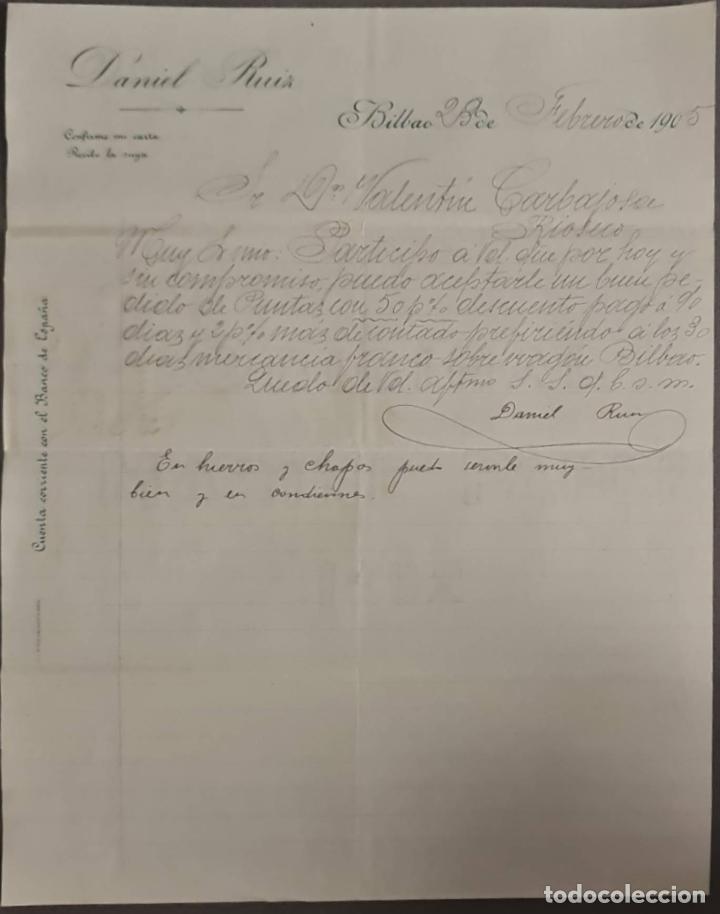 Daniel Ruiz
Bilbao 28 de Febrero de 1905
Confirmo mi carta
Recibo la suya
Sr Dn Valentín Carbajosa
Rioseco
Muy Sr mio: Participo á Vd. que por hoy y
sin compromiso, puedo aceptarle un buen pe-
dido de Puntas con 50 p% descuento pago á 90
dias y 2 p% mas al contado prefiriendo á los 30
dias mercancia franco sobre wagon Bilbao.
Quedo de Vd. aftmo S. S. q. b. s. m.
Daniel Ruiz
En hierros y chapas puedo servirle muy
bien y en condiciones.
Cuenta corriente con el Banco de España
todocoleccion